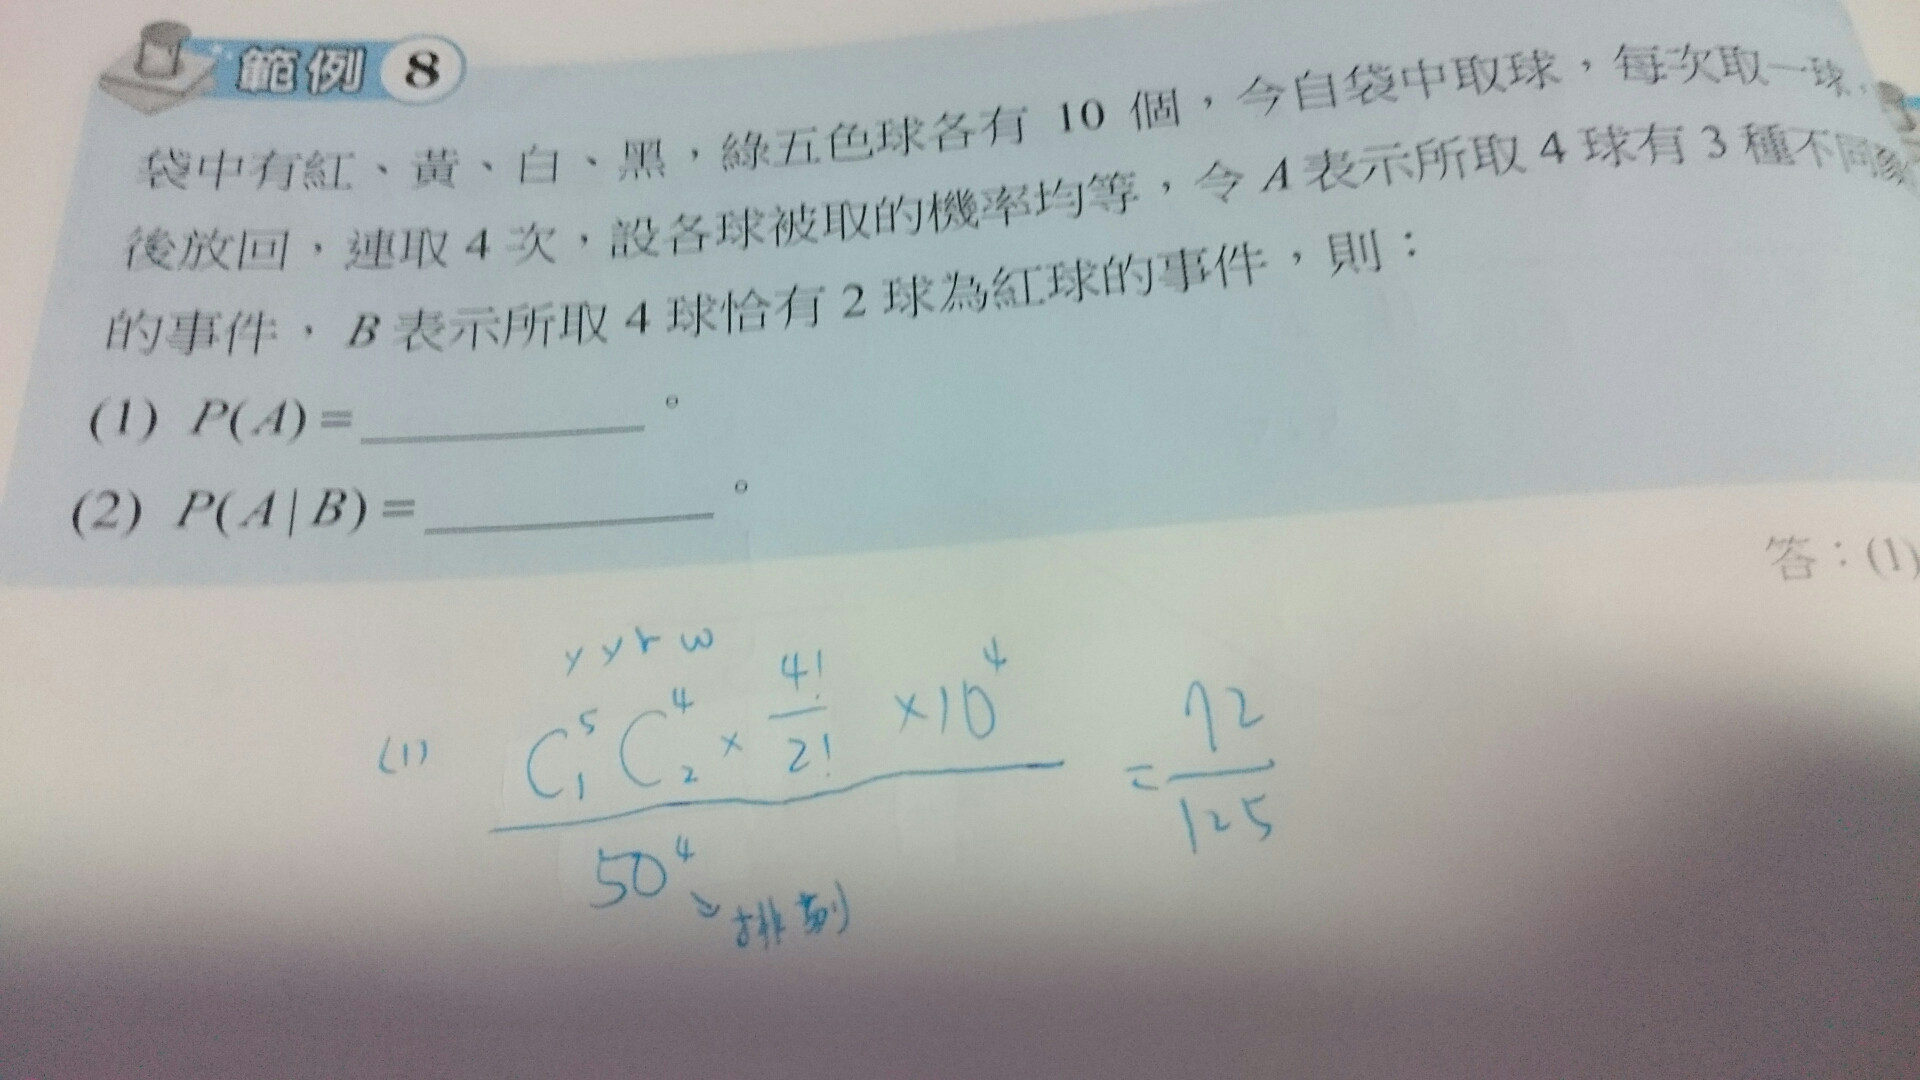 範例 8
袋中有紅、黃、白、黑，綠五色球各有 10 個，今自袋中取球，每次取一球，
後放回，連取 4 次，設各球被取的機率均等，令 A 表示所取 4 球有 3 種不同
的事件，B 表示所取 4 球恰有 2 球為紅球的事件，則：
(1) P(A)=________。
(2) P(A|B)=________。
答：(1)
y y r w
(1) C⁵₁ C⁴₂ × 4!/2! × 10⁴ / 50⁴ = 72/125
排列